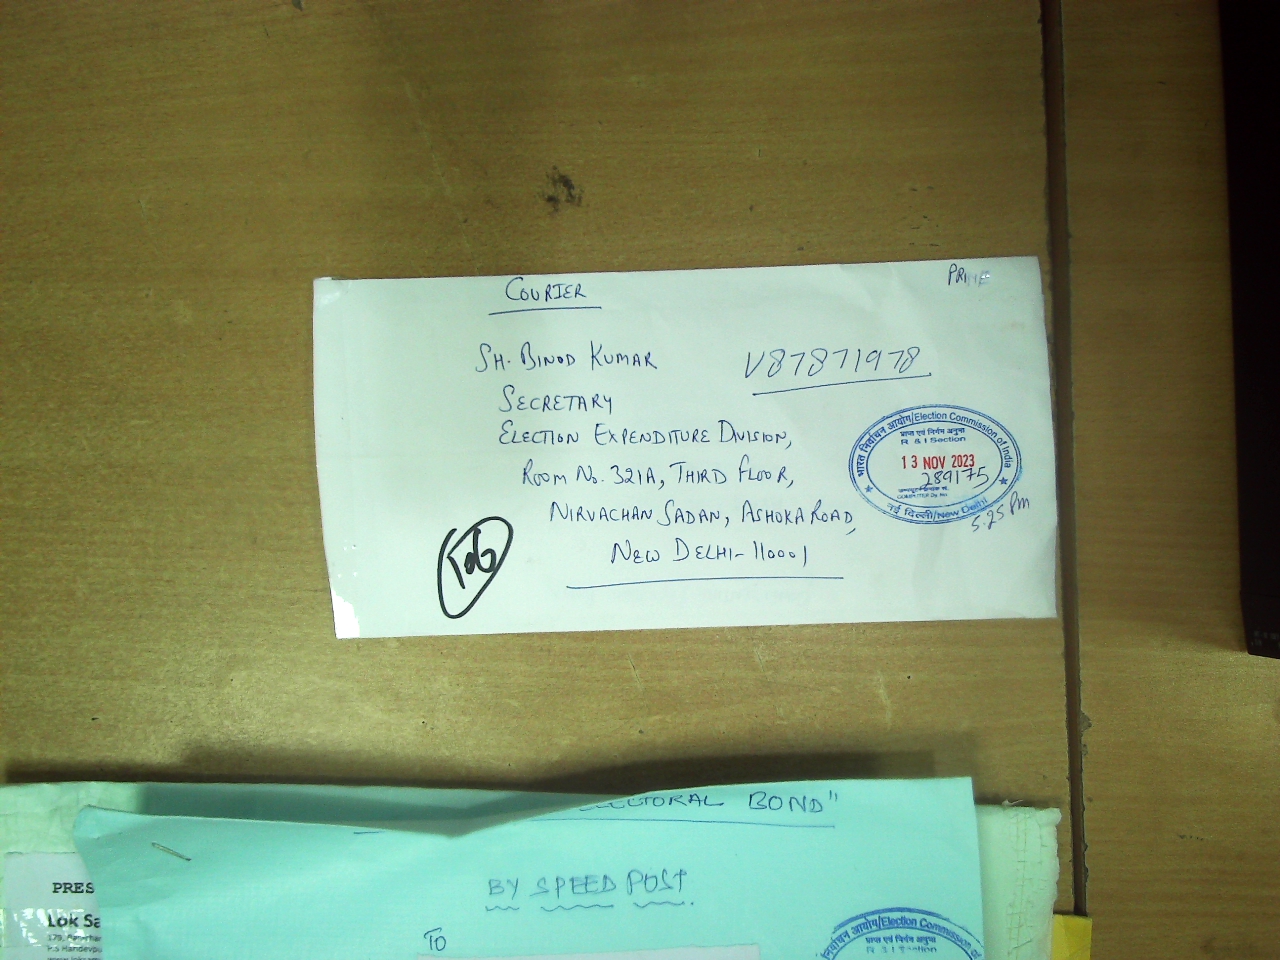 COURIER
PRIME
SH. BINOD KUMAR
V87871978
SECRETARY
ELECTION EXPENDITURE DIVISION,
ROOM No. 321A, THIRD FLOOR,
NIRVACHAN SADAN, ASHOKA ROAD,
NEW DELHI-110001
भारत निर्वाचन आयोग/Election Commission of India
प्राप्त एवं निर्गम अनुभाग
R & I Section
13 NOV 2023
289175
COMPUTER Dy. No.
नई दिल्ली/New Delhi
5.25 PM
BOND"
BY SPEED POST
TO
PRES
Lok Sa
निर्वाचन आयोग/Election Commission of
R & I Section